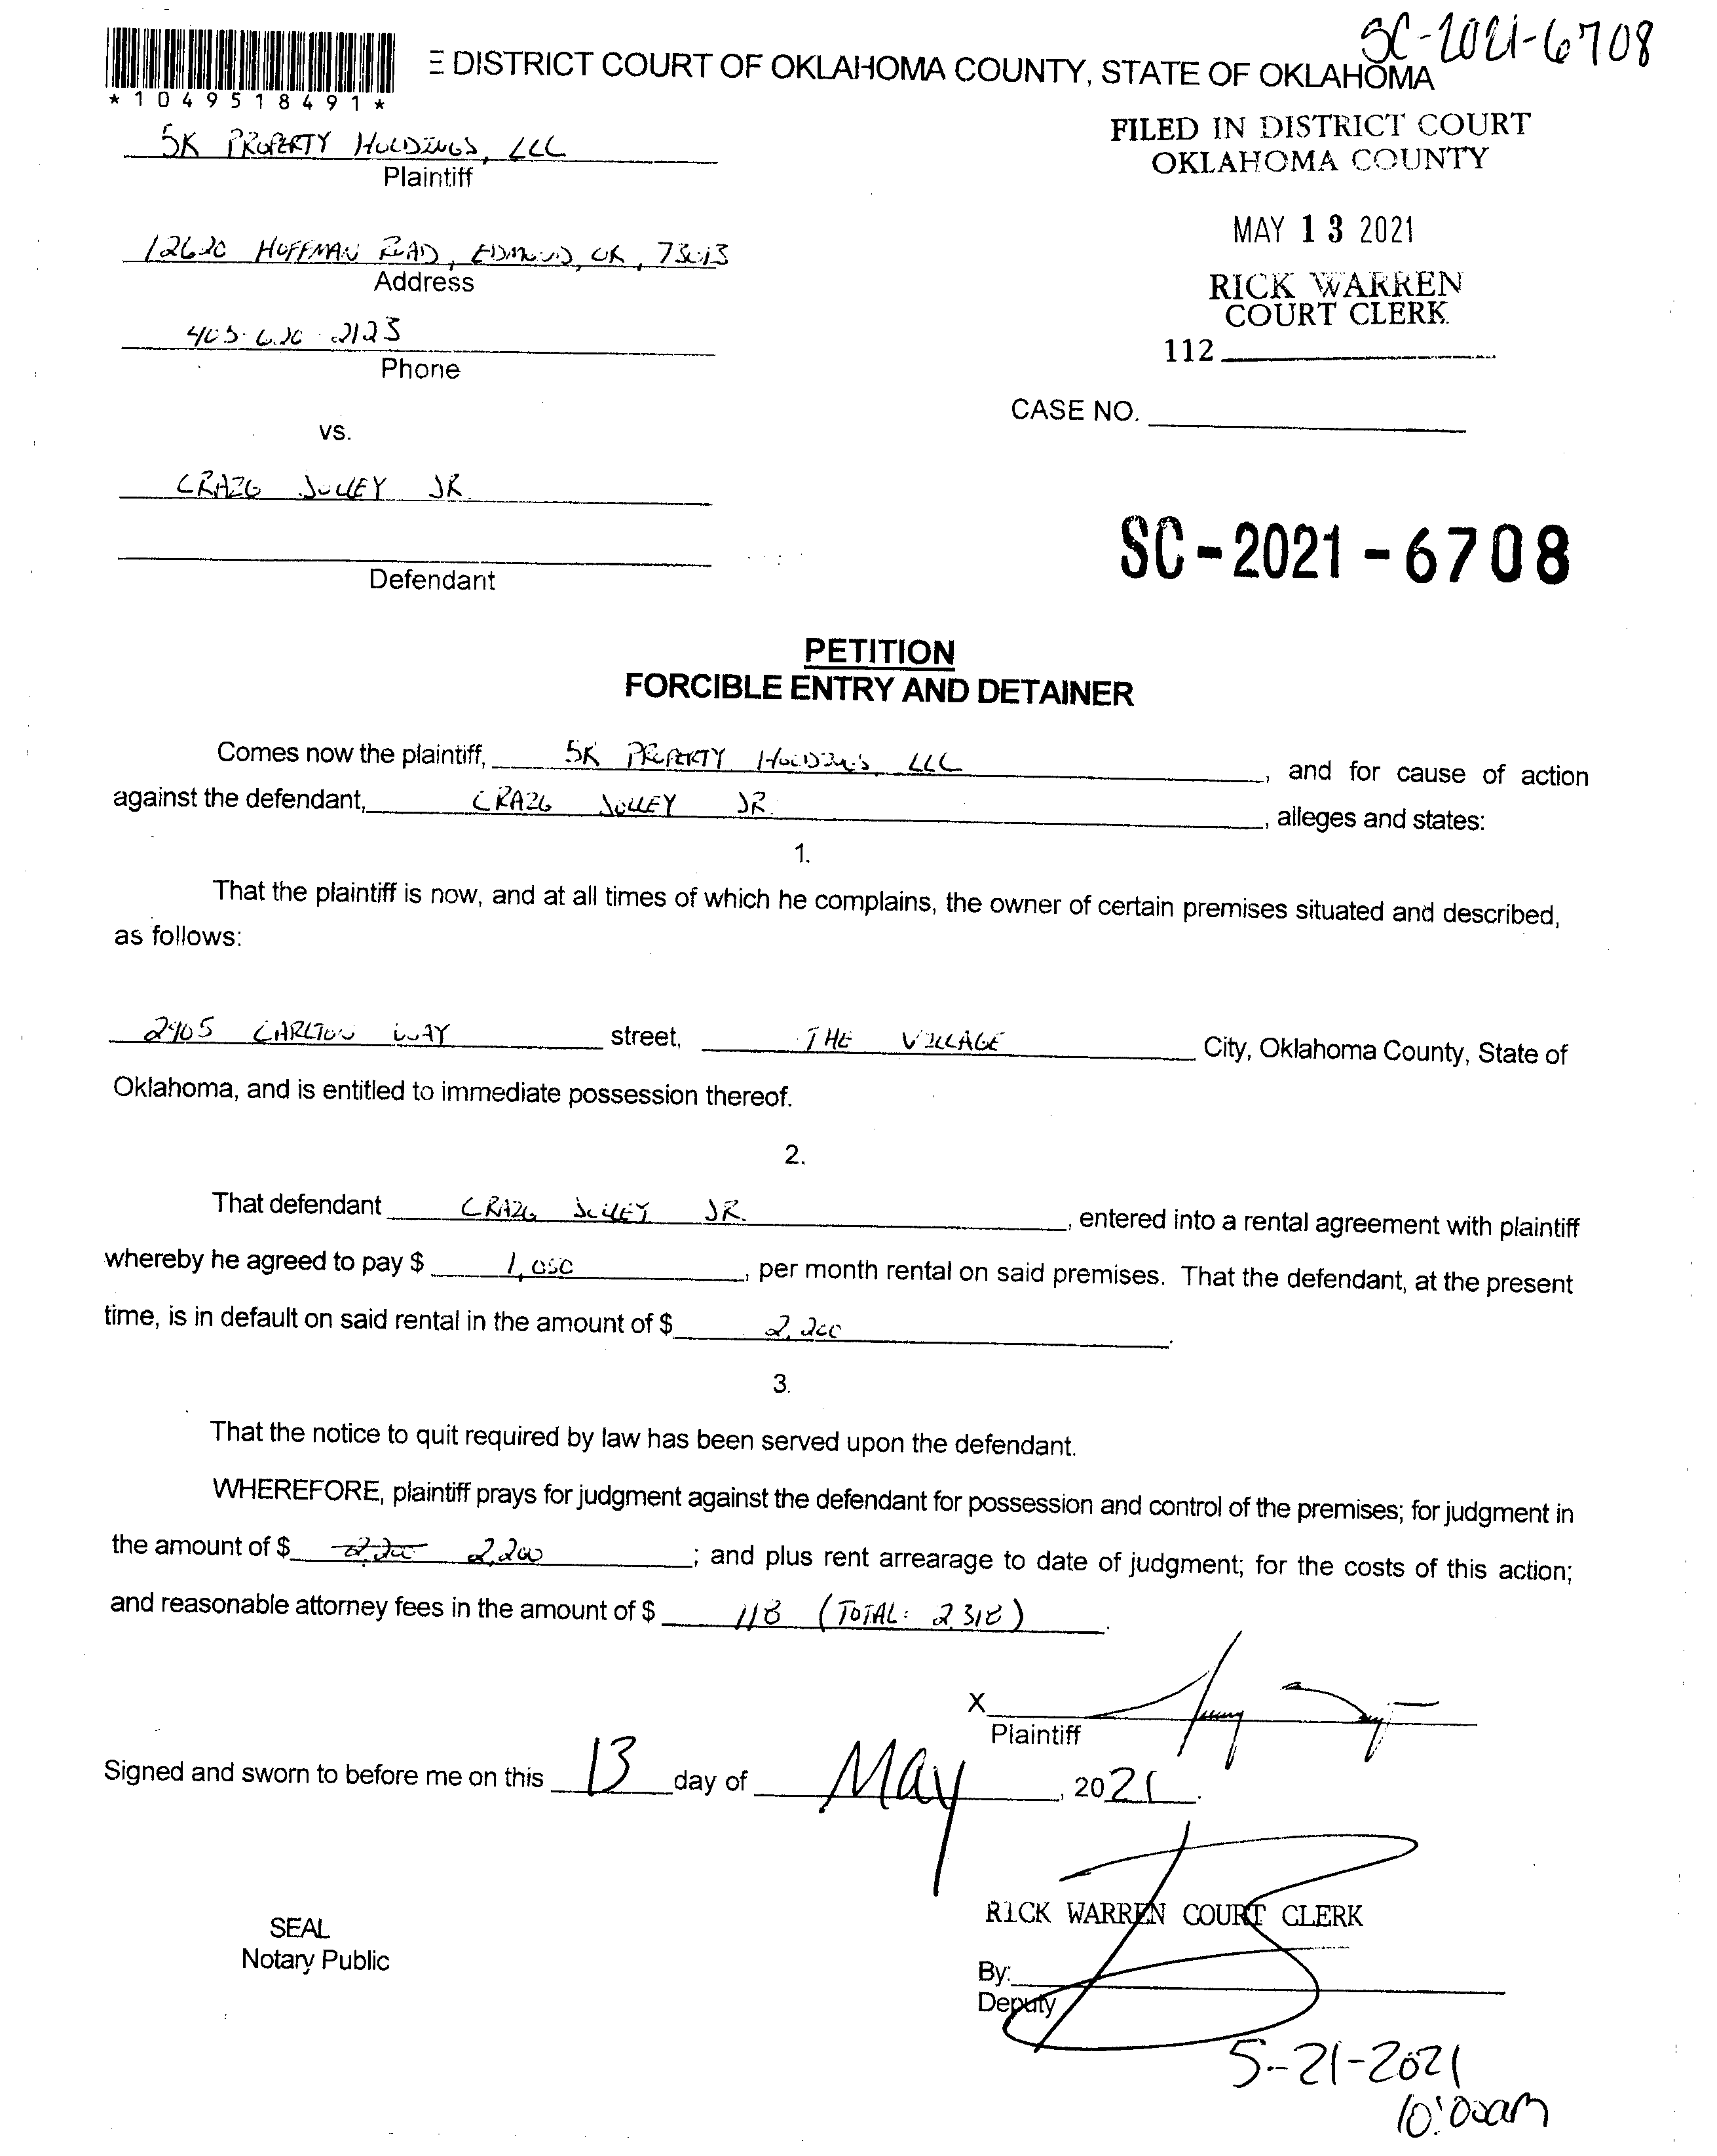 SC-2021-6708
E DISTRICT COURT OF OKLAHOMA COUNTY, STATE OF OKLAHOMA
*1049518491*
FILED IN DISTRICT COURT
OKLAHOMA COUNTY
5K PROPERTY HOLDINGS, LLC
Plaintiff
MAY 13 2021
12620 HOFFMAN ROAD, EDMOND, OK, 73013
Address
RICK WARREN
COURT CLERK
405-620-2123
Phone
112
CASE NO.
vs.
CRAIG JOLLEY JR.
Defendant
SC-2021-6708
PETITION
FORCIBLE ENTRY AND DETAINER
Comes now the plaintiff, 5K PROPERTY HOLDINGS, LLC, and for cause of action
against the defendant, CRAIG JOLLEY JR., alleges and states:
1.
That the plaintiff is now, and at all times of which he complains, the owner of certain premises situated and described,
as follows:
2905 CARLTON WAY street, THE VILLAGE City, Oklahoma County, State of
Oklahoma, and is entitled to immediate possession thereof.
2.
That defendant CRAIG JOLLEY JR., entered into a rental agreement with plaintiff
whereby he agreed to pay $ 1,050, per month rental on said premises. That the defendant, at the present
time, is in default on said rental in the amount of $ 2,200.
3.
That the notice to quit required by law has been served upon the defendant.
WHEREFORE, plaintiff prays for judgment against the defendant for possession and control of the premises; for judgment in
the amount of $ 2,200 2,200; and plus rent arrearage to date of judgment; for the costs of this action;
and reasonable attorney fees in the amount of $ 118 (TOTAL: 2,318).
X
Plaintiff
Signed and sworn to before me on this 13 day of May, 2021.
RICK WARREN COURT CLERK
SEAL
Notary Public
By:
Deputy
5-21-2021
10:00am